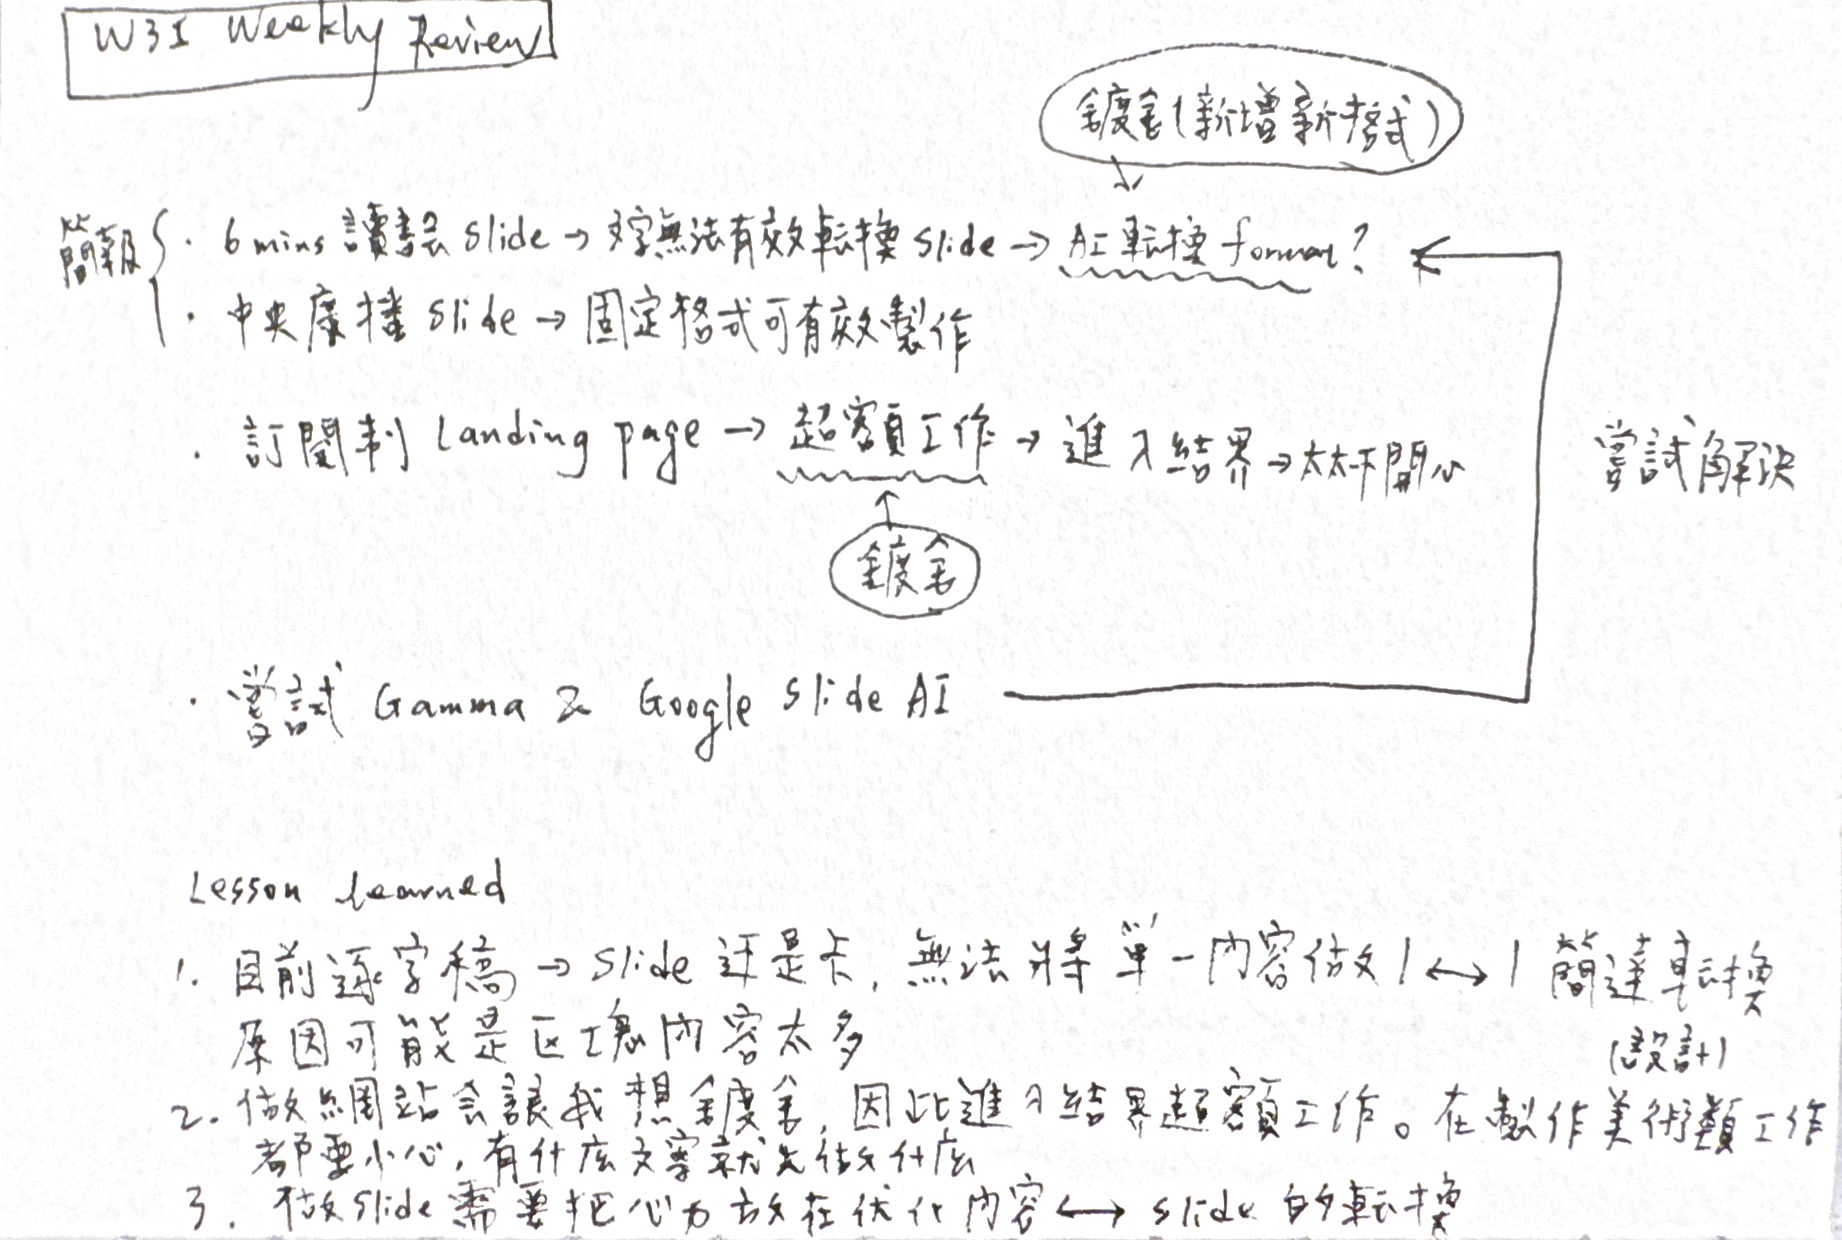 W31 Weekly Review
鍍金(新增新格式)
簡報
· 6 mins 讀書会 slide → 文字無法有效転換 slide → AI 転換 format?
· 中央廣播 slide → 固定格式可有效製作
· 訂閱制 Landing page → 超額工作 → 進入結界 → 太太不開心
嘗試解決
鍍金
· 嘗試 Gamma & Google Slide AI
Lesson learned
1. 目前逐字稿 → slide 还是卡, 無法將單一內容做 1 ↔ 1 簡達転換
(設計)
原因可能是区塊內容太多
2. 做網站会讓我想鍍金, 因此進入結界超額工作。在製作美術類工作
都要小心, 有什庅文案就先做什庅
3. 做 slide 需要把心力放在优化內容 ↔ slide 的転換